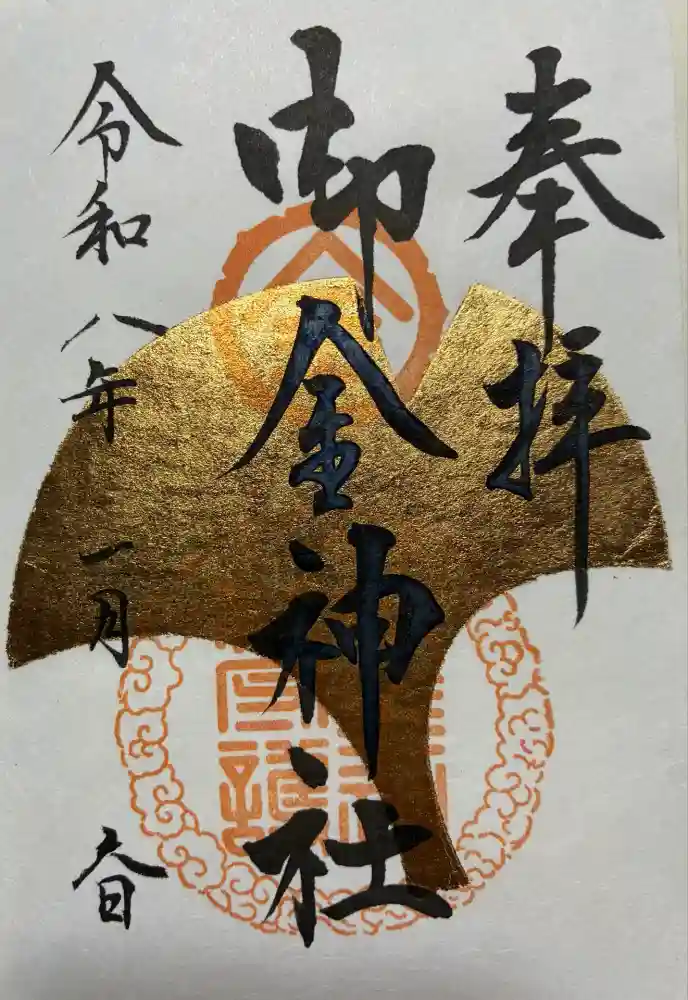 奉拝
御金神社
令和八年一月六日